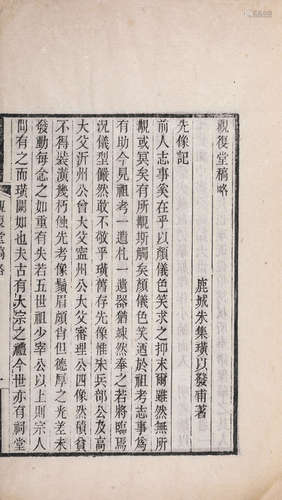 觀復堂稿略
鹿城朱集璜以發甫著
先像記
前人志事矣在乎以顏儀色笑求之抑末爾雖然無所
覩或冥矣有所覩斯觸矣顏儀色笑適於祖考志事爲
有助今見祖考一遺札一遺器猶竦然奉之若將臨焉
況儀型儼然敢不敬乎璜舊存先像惟朱兵部公及高
大父沂州公曾大父寧州公大父審理公四像然積貧
不得裝潢幾朽蝕先考像鬚眉頗肖但德厚之光差未
發動每念之如重有失若五世祖少宰公以上則宗人
間有之而璜闕如也夫古有大宗之禮今世亦有祠堂
觀復堂稿略
一